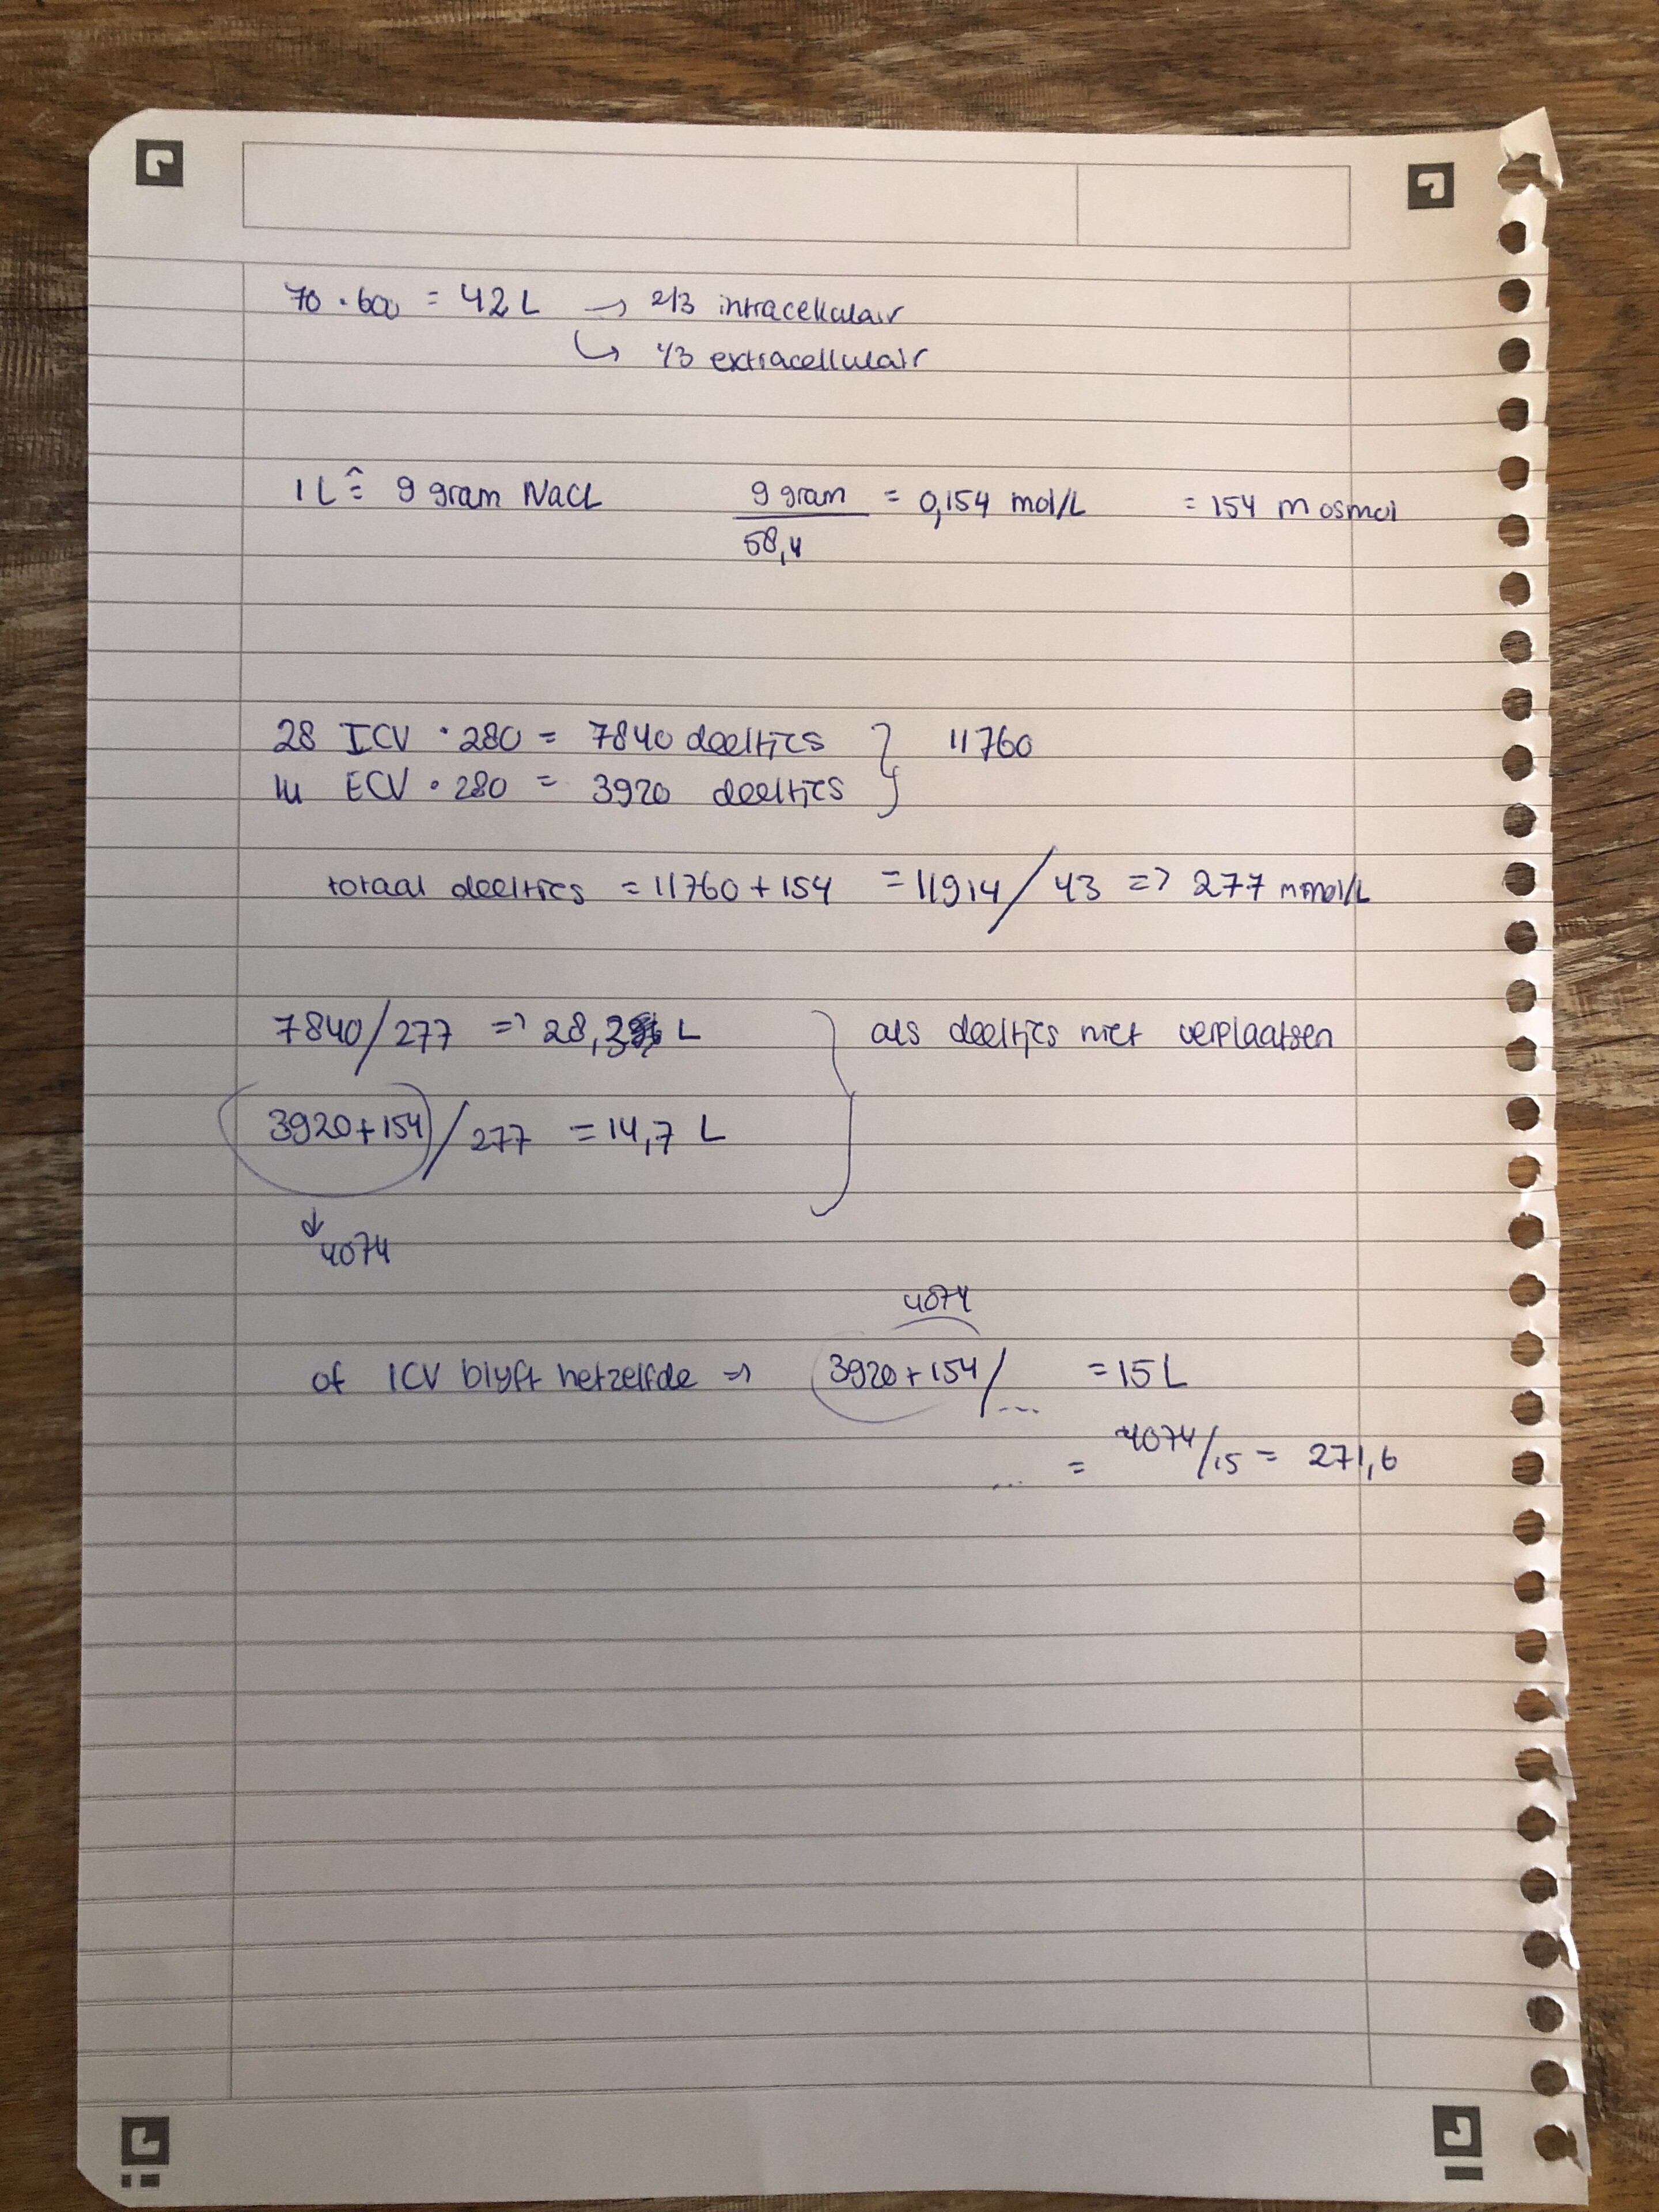 70 · 600 = 42 L → 2/3 intracellulair
↳ 1/3 extracellulair
1 L ≙ 9 gram NaCl 9 gram / 58,4 = 0,154 mol/L = 154 mosmol
28 ICV · 280 = 7840 deeltjes } 11760
14 ECV · 280 = 3920 deeltjes
totaal deeltjes = 11760 + 154 = 11914 / 43 => 277 mmol/L
7840/277 => 28,3 L } als deeltjes niet verplaatsen
3920+154 / 277 = 14,7 L
↓ 4074
4074
of ICV blijft hetzelfde => 3920+154 / ... = 15 L
... = 4074/15 = 271,6